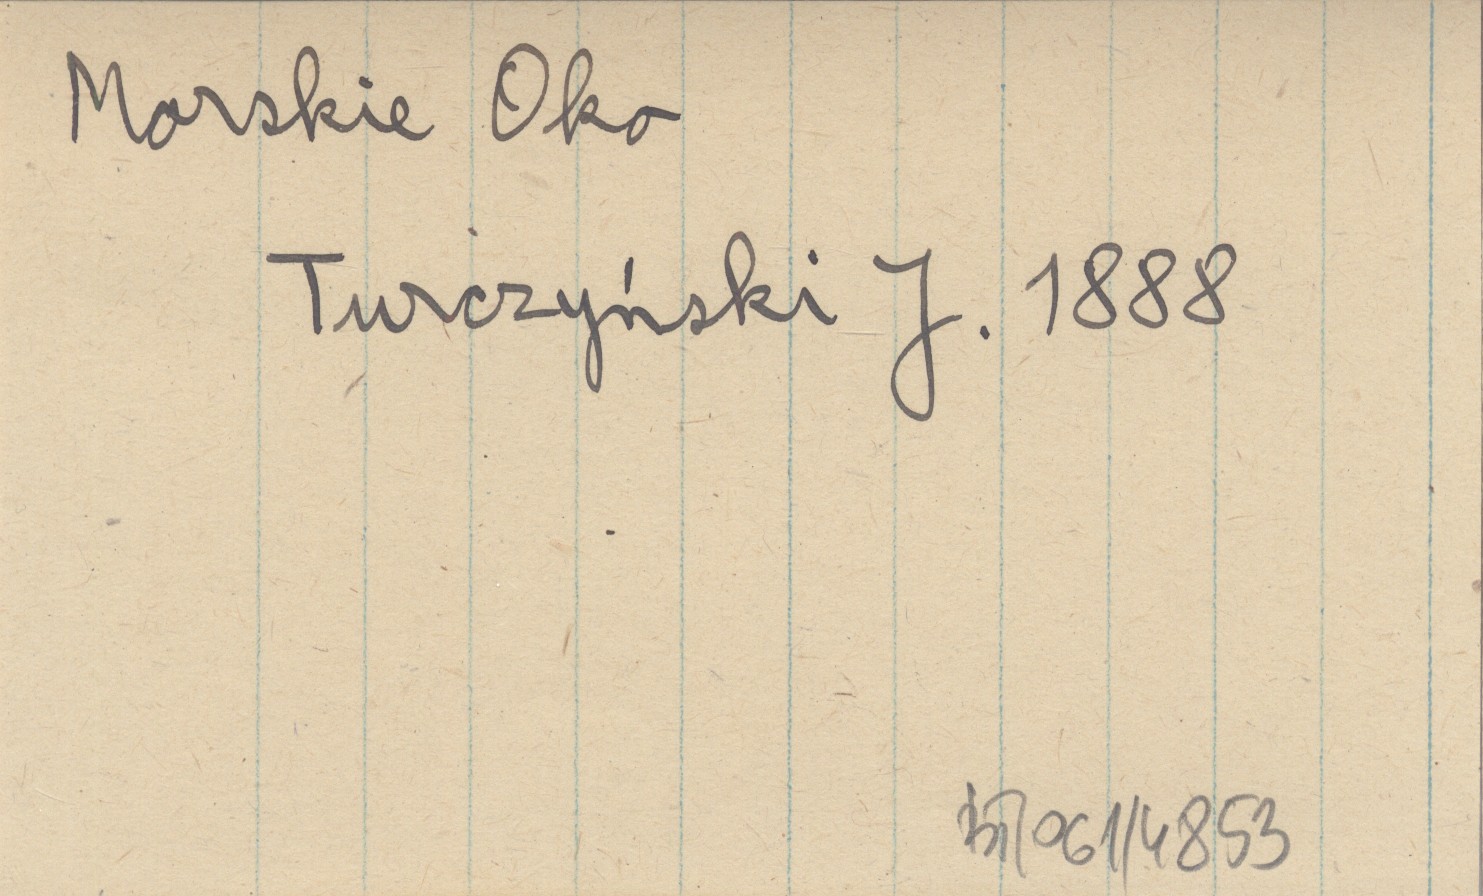 Morskie Oko
Turczyński J. 1888
061/4853